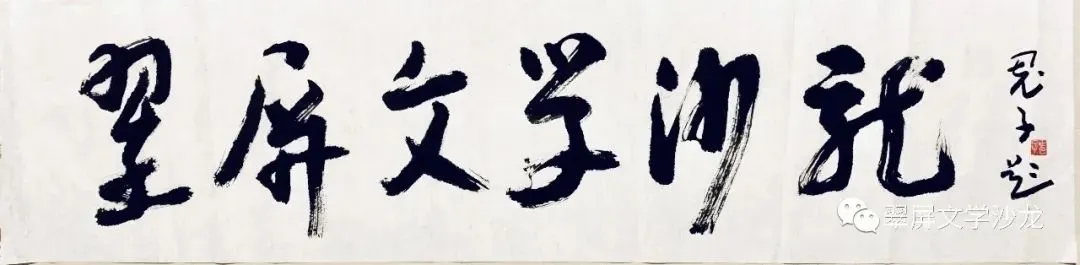 翠屏文学沙龙
思子题
翠屏文学沙龙